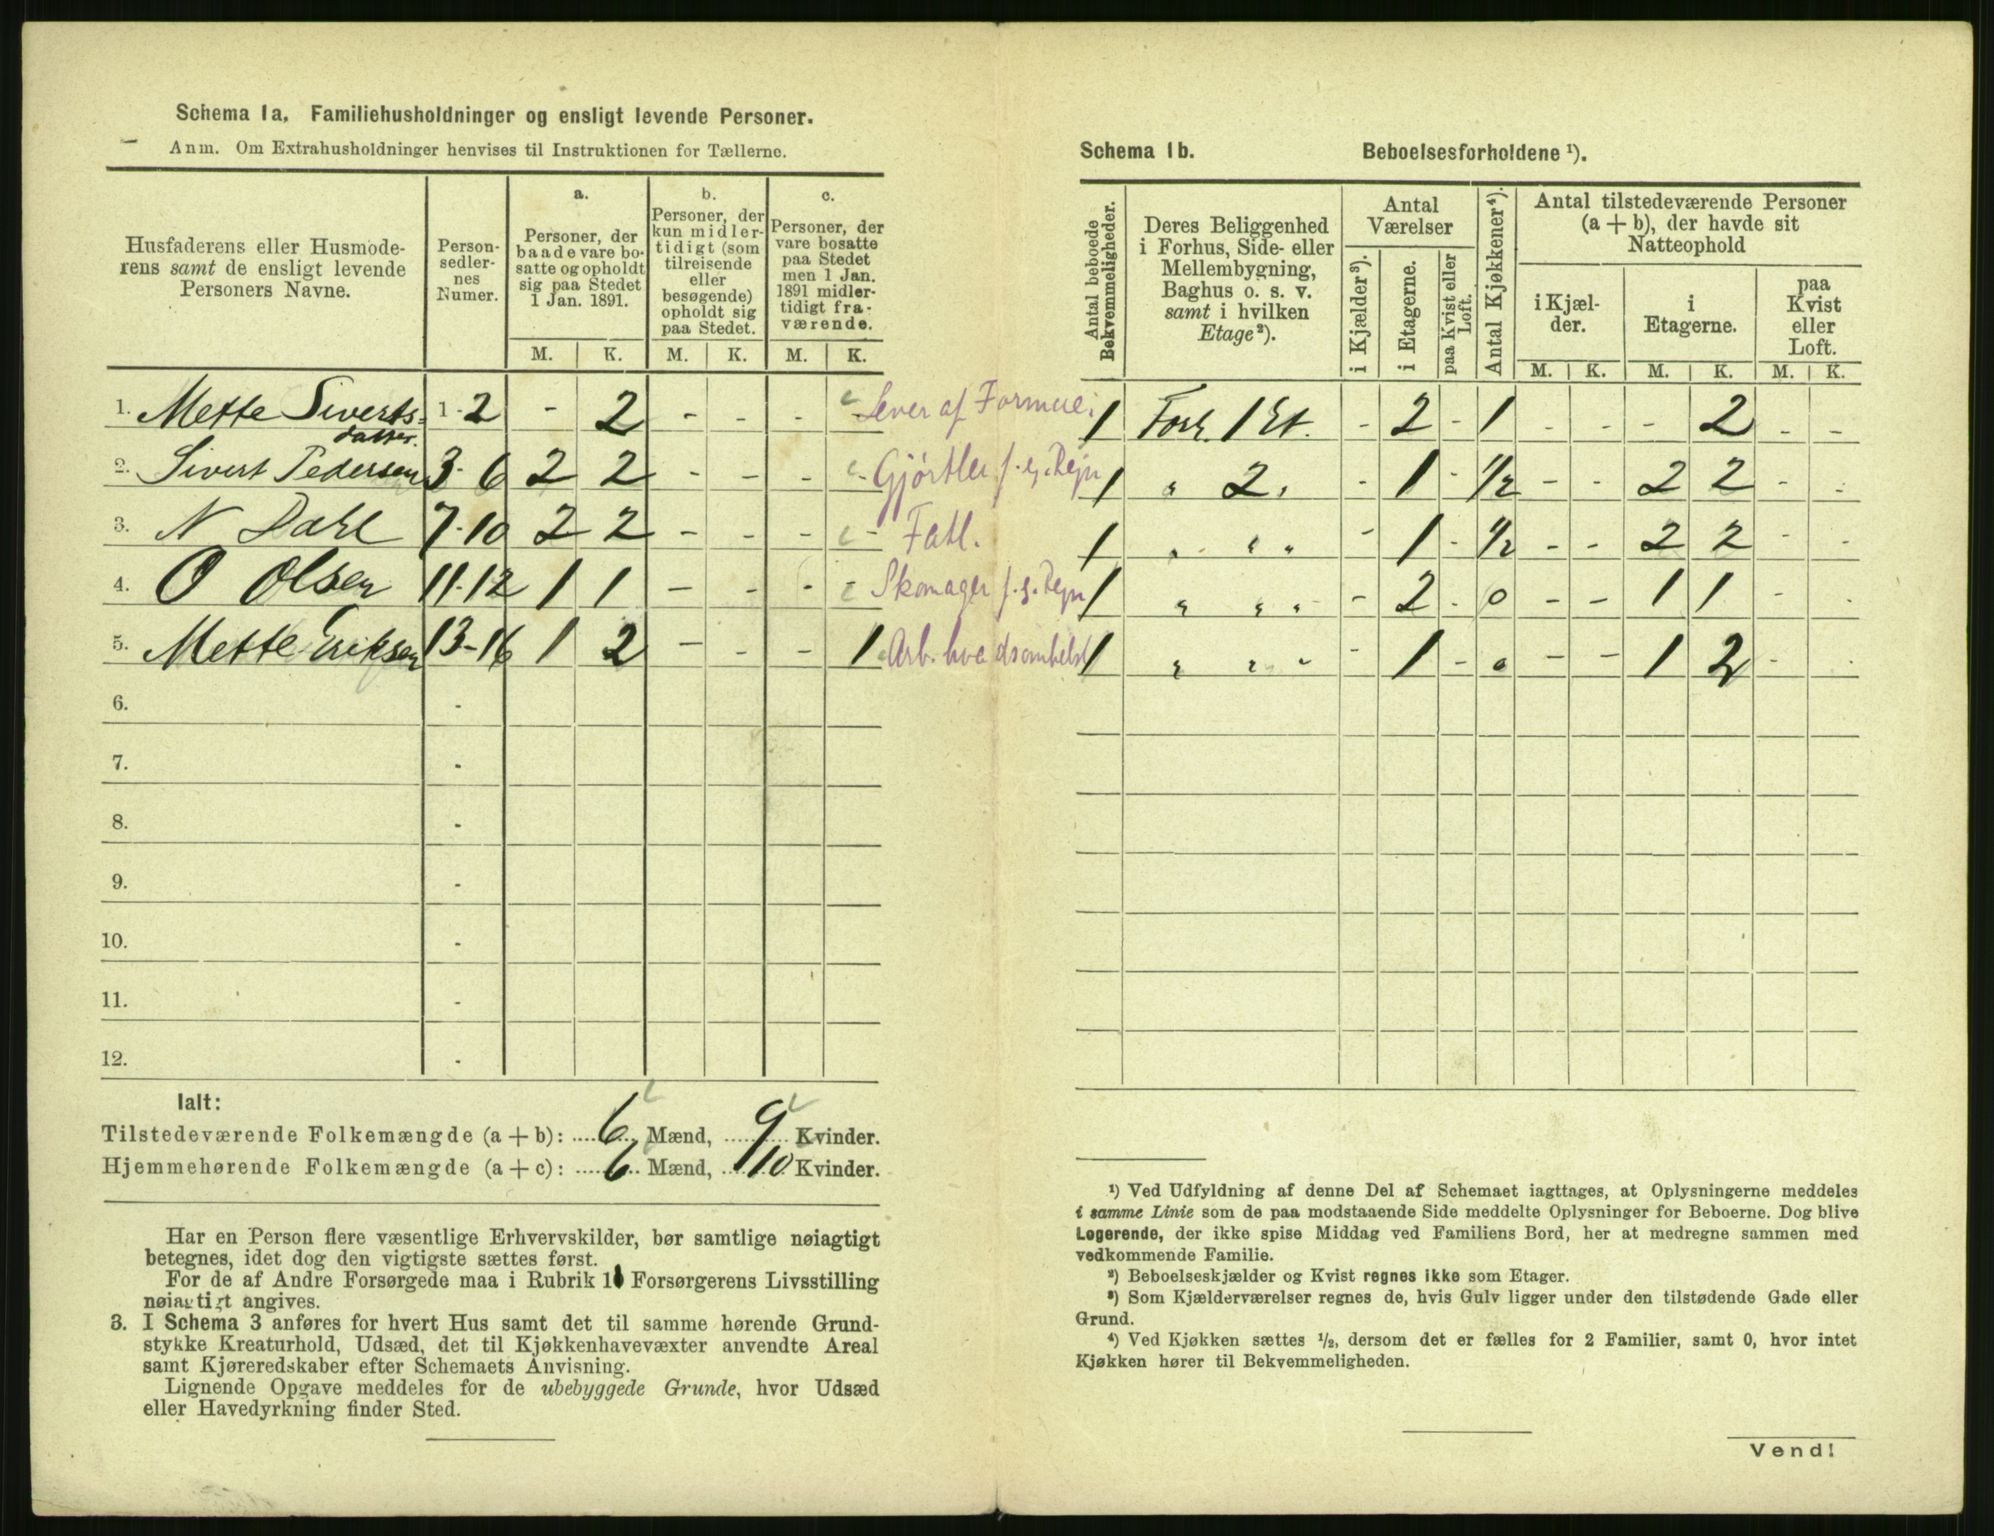 Schema 1a. Familiehusholdninger og ensligt levende Personer.
Anm. Om Extrahusholdninger henvises til Instruktionen for Tællerne.
Husfaderens eller Husmode-
rens samt de ensligt levende
Personers Navne.
Person-
sedler-
nes
Numer.
a.
Personer, der
baade vare bo-
satte og opholdt
sig paa Stedet
1 Jan. 1891.
b.
Personer, der
kun midler-
tidigt (som
tilreisende
eller
besøgende)
opholdt sig
paa Stedet.
c.
Personer, der
vare bosatte
paa Stedet
men 1 Jan.
1891 midler-
tidigt fra-
værende.
M. K. M. K. M. K.
1. Mette Siverts= 1-2 - 2 - - - - Lever af Formue.
datter.
2. Sivert Pedersen 3-6 2 2 - - - - Gjørtler f. eg. Regn
3. N Dahl 7-10 2 2 - - - - Fatl.
4. O Olsen 11-12 1 1 - - - Skomager f. eg. Regn
5. Mette Eriksen 13-16 1 2 - - - 1 Arb. hvadsomhelst
6. -
7. -
8. -
9. -
10. -
11. -
12. -
Ialt:
Tilstedeværende Folkemængde (a + b): 6 Mænd, 9 Kvinder.
Hjemmehørende Folkemængde (a + c): 6 Mænd, 10 Kvinder.
Har en Person flere væsentlige Erhvervskilder, bør samtlige nøiagtigt
betegnes, idet dog den vigtigste sættes først.
For de af Andre Forsørgede maa i Rubrik Forsørgerens Livsstilling
nøiagtigt angives.
3. I Schema 3 anføres for hvert Hus samt det til samme hørende Grund-
stykke Kreaturhold, Udsæd, det til Kjøkkenhavevæxter anvendte Areal
samt Kjøreredskaber efter Schemaets Anvisning.
Lignende Opgave meddeles for de ubebyggede Grunde, hvor Udsæd
eller Havedyrkning finder Sted.
Schema 1b. Beboelsesforholdene ¹).
Antal beboede
Bekvemmeligheder.
Deres Beliggenhed
i Forhus, Side- eller
Mellembygning,
Baghus o. s. v.
samt i hvilken
Etage²).
Antal
Værelser
i Kjælder³).
i Etagerne.
paa Kvist eller
Loft.
Antal Kjøkkener⁴).
Antal tilstedeværende Personer
(a + b), der havde sit
Natteophold
i Kjæl-
der.
i
Etagerne.
paa
Kvist
eller
Loft.
M. K. M. K. M. K.
1 Forh. 1 Et. - 2 - 1 - - - 2 - -
1 " 2. - 1 - 1/2 - - 2 2 - -
1 " " " - 1 - 1/2 - - 2 2 - -
1 " " " - 2 - 0 - - 1 1 - -
1 " " " - 1 - 0 - - 1 2 - -
¹) Ved Udfyldning af denne Del af Schemaet iagttages, at Oplysningerne meddeles
i samme Linie som de paa modstaaende Side meddelte Oplysninger for Beboerne. Dog blive
Logerende, der ikke spise Middag ved Familiens Bord, her at medregne sammen med
vedkommende Familie.
²) Beboelseskjælder og Kvist regnes ikke som Etager.
³) Som Kjælderværelser regnes de, hvis Gulv ligger under den tilstødende Gade eller
Grund.
⁴) Ved Kjøkken sættes ½, dersom det er fælles for 2 Familier, samt 0, hvor intet
Kjøkken hører til Bekvemmeligheden.
Vend!